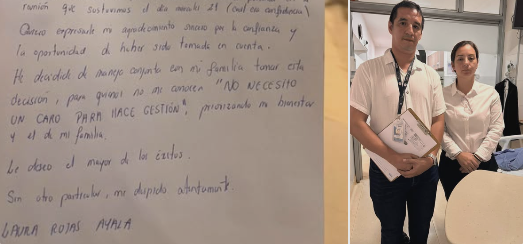 reunión que sostuvimos el día martes 21 (cual era confidencial)
Quiero expresarle mi agradecimiento sincero por la confianza y
la oportunidad de haber sido tomada en cuenta.
He decidido de manera conjunta con mi familia tomar esta
decisión, para quienes no me conocen "NO NECESITO
UN CARGO PARA HACE GESTIÓN", priorizando mi bienestar
y el de mi familia.
Le deseo el mayor de los éxitos.
Sin otro particular, me despido atentamente.
LAURA ROJAS AYALA